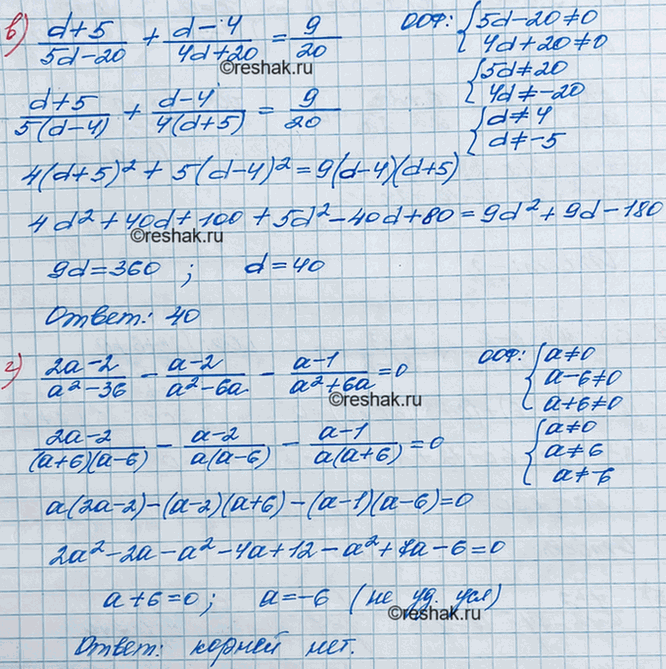 в) (d+5)/(5d−20) + (d−4)/(4d+20) = 9/20 ООФ: { 5d−20≠0
4d+20≠0
©reshak.ru
{ 5d≠20
4d≠−20
(d+5)/(5(d−4)) + (d−4)/(4(d+5)) = 9/20 { d≠4
d≠−5
4(d+5)² + 5(d−4)² = 9(d−4)(d+5)
4d²+40d+100+5d²−40d+80=9d²+9d−180
©reshak.ru
9d=360 ; d=40
Ответ: 40
г) (2a−2)/(a²−36) − (a−2)/(a²−6a) − (a−1)/(a²+6a) =0 ООФ: { a≠0
a−6≠0
a+6≠0
©reshak.ru
(2a−2)/((a+6)(a−6)) − (a−2)/(a(a−6)) − (a−1)/(a(a+6)) =0 { a≠0
a≠6
a≠−6
a(2a−2)−(a−2)(a+6)−(a−1)(a−6)=0
2a²−2a−a²−4a+12−a²+7a−6=0
a+6=0; a=−6 (не уд. усл)
©reshak.ru
Ответ: корней нет.